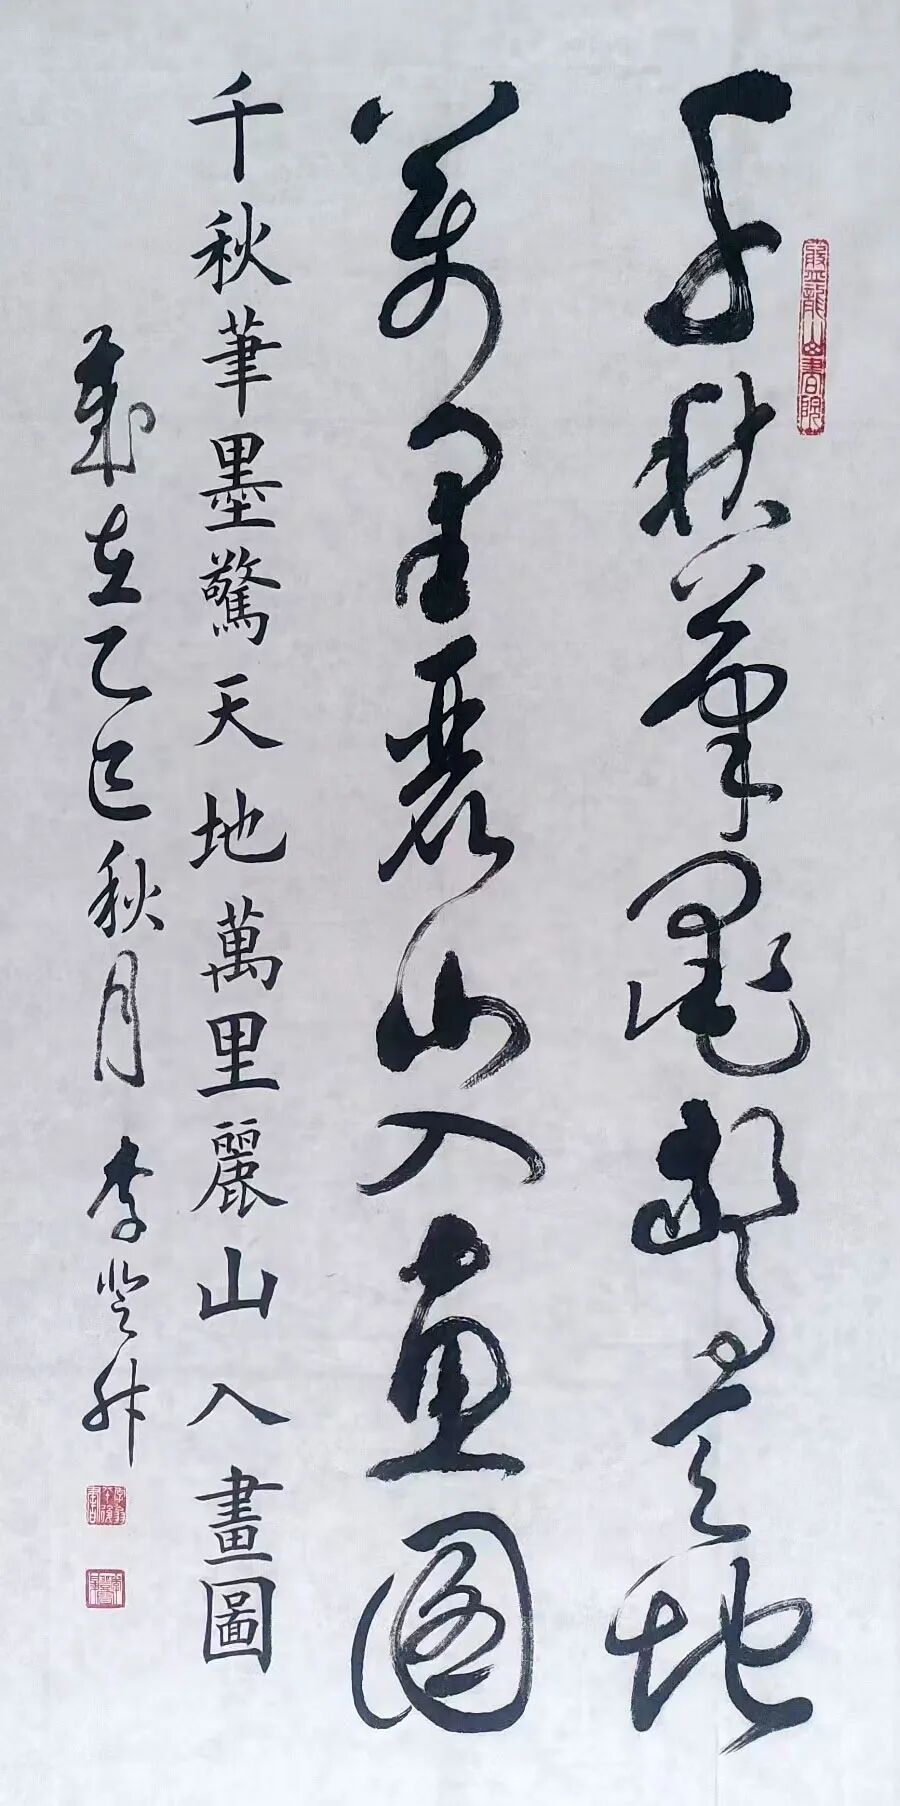 千秋筆墨驚天地
萬里麗山入畫圖
千秋筆墨驚天地萬里麗山入畫圖
歲在乙巳秋月李登升